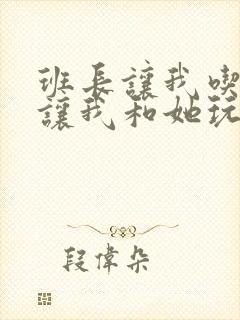 班長讓我喫
讓我和她玩
段偉朵